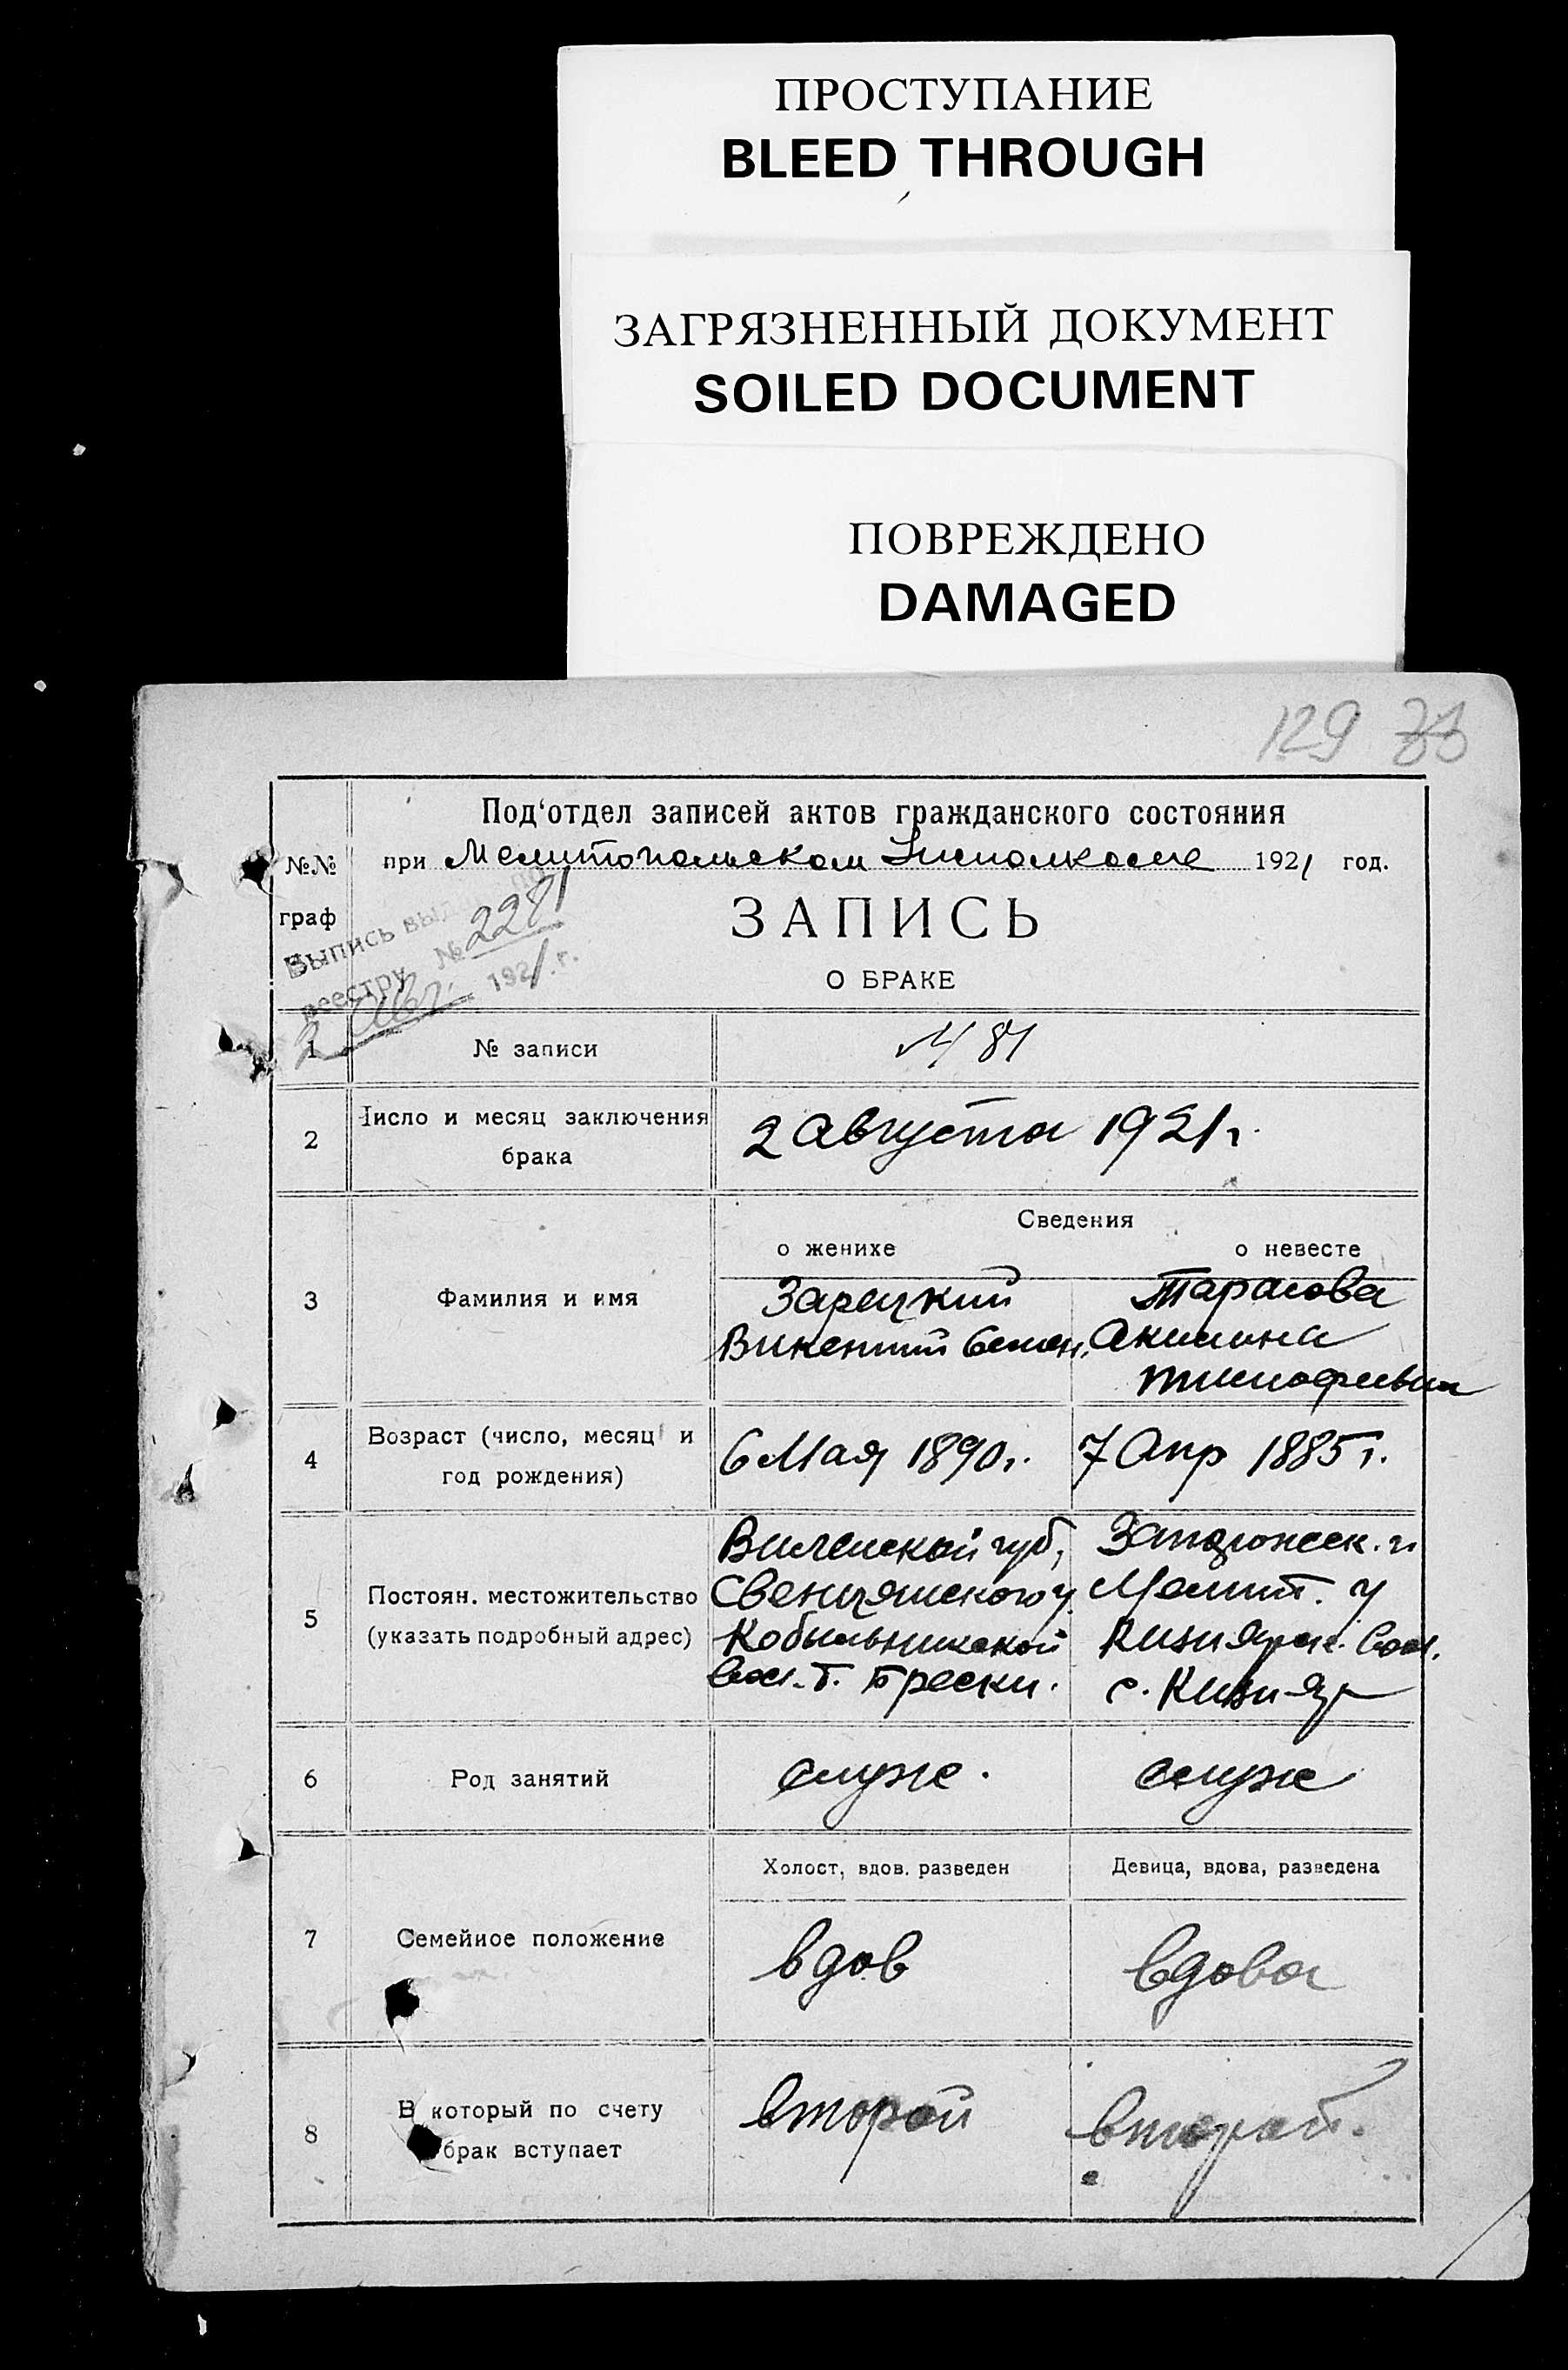 ПРОСТУПАНИЕ
BLEED THROUGH
ЗАГРЯЗНЕННЫЙ ДОКУМЕНТ
SOILED DOCUMENT
ПОВРЕЖДЕНО
DAMAGED
129
Под'отдел записей актов гражданского состояния
№№ граф
при Мелитопольском Исполкоме 1921 год.
Выпись выд
реестру № 2281
1921 г.
ЗАПИСЬ
О БРАКЕ
1 № записи № 81
2 Число и месяц заключения брака 2 Августа 1921 г.
Сведения
о женихе о невесте
3 Фамилия и имя
Зарецкий Тарасова
Викентий Семен. Акилина
Тимофеевна
4 Возраст (число, месяц и год рождения) 6 Мая 1890 г. 7 Апр 1885 г.
5 Постоян. местожительство (указать подробный адрес)
Виленской губ, Запорожск. г.
Свенцянского у. Мелит. у
Кобыльникской Кизиярск. вол.
вол. Брески. с. Кизияр
6 Род занятий служ. служ
Холост, вдов. разведен Девица, вдова, разведена
7 Семейное положение вдов вдова
8 В который по счету брак вступает второй второй.